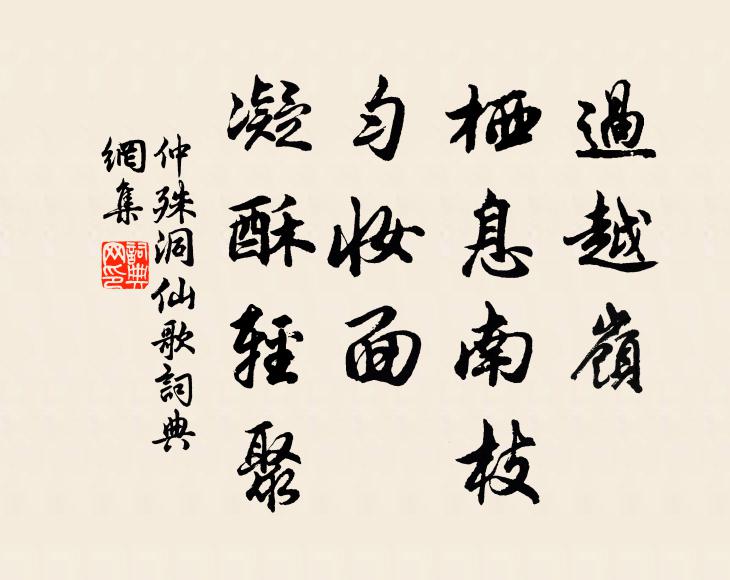 過越嶺
栖息南枝
匀妆面
凝酥輕聚
仲殊洞仙歌詞典
網集
詞典
网印